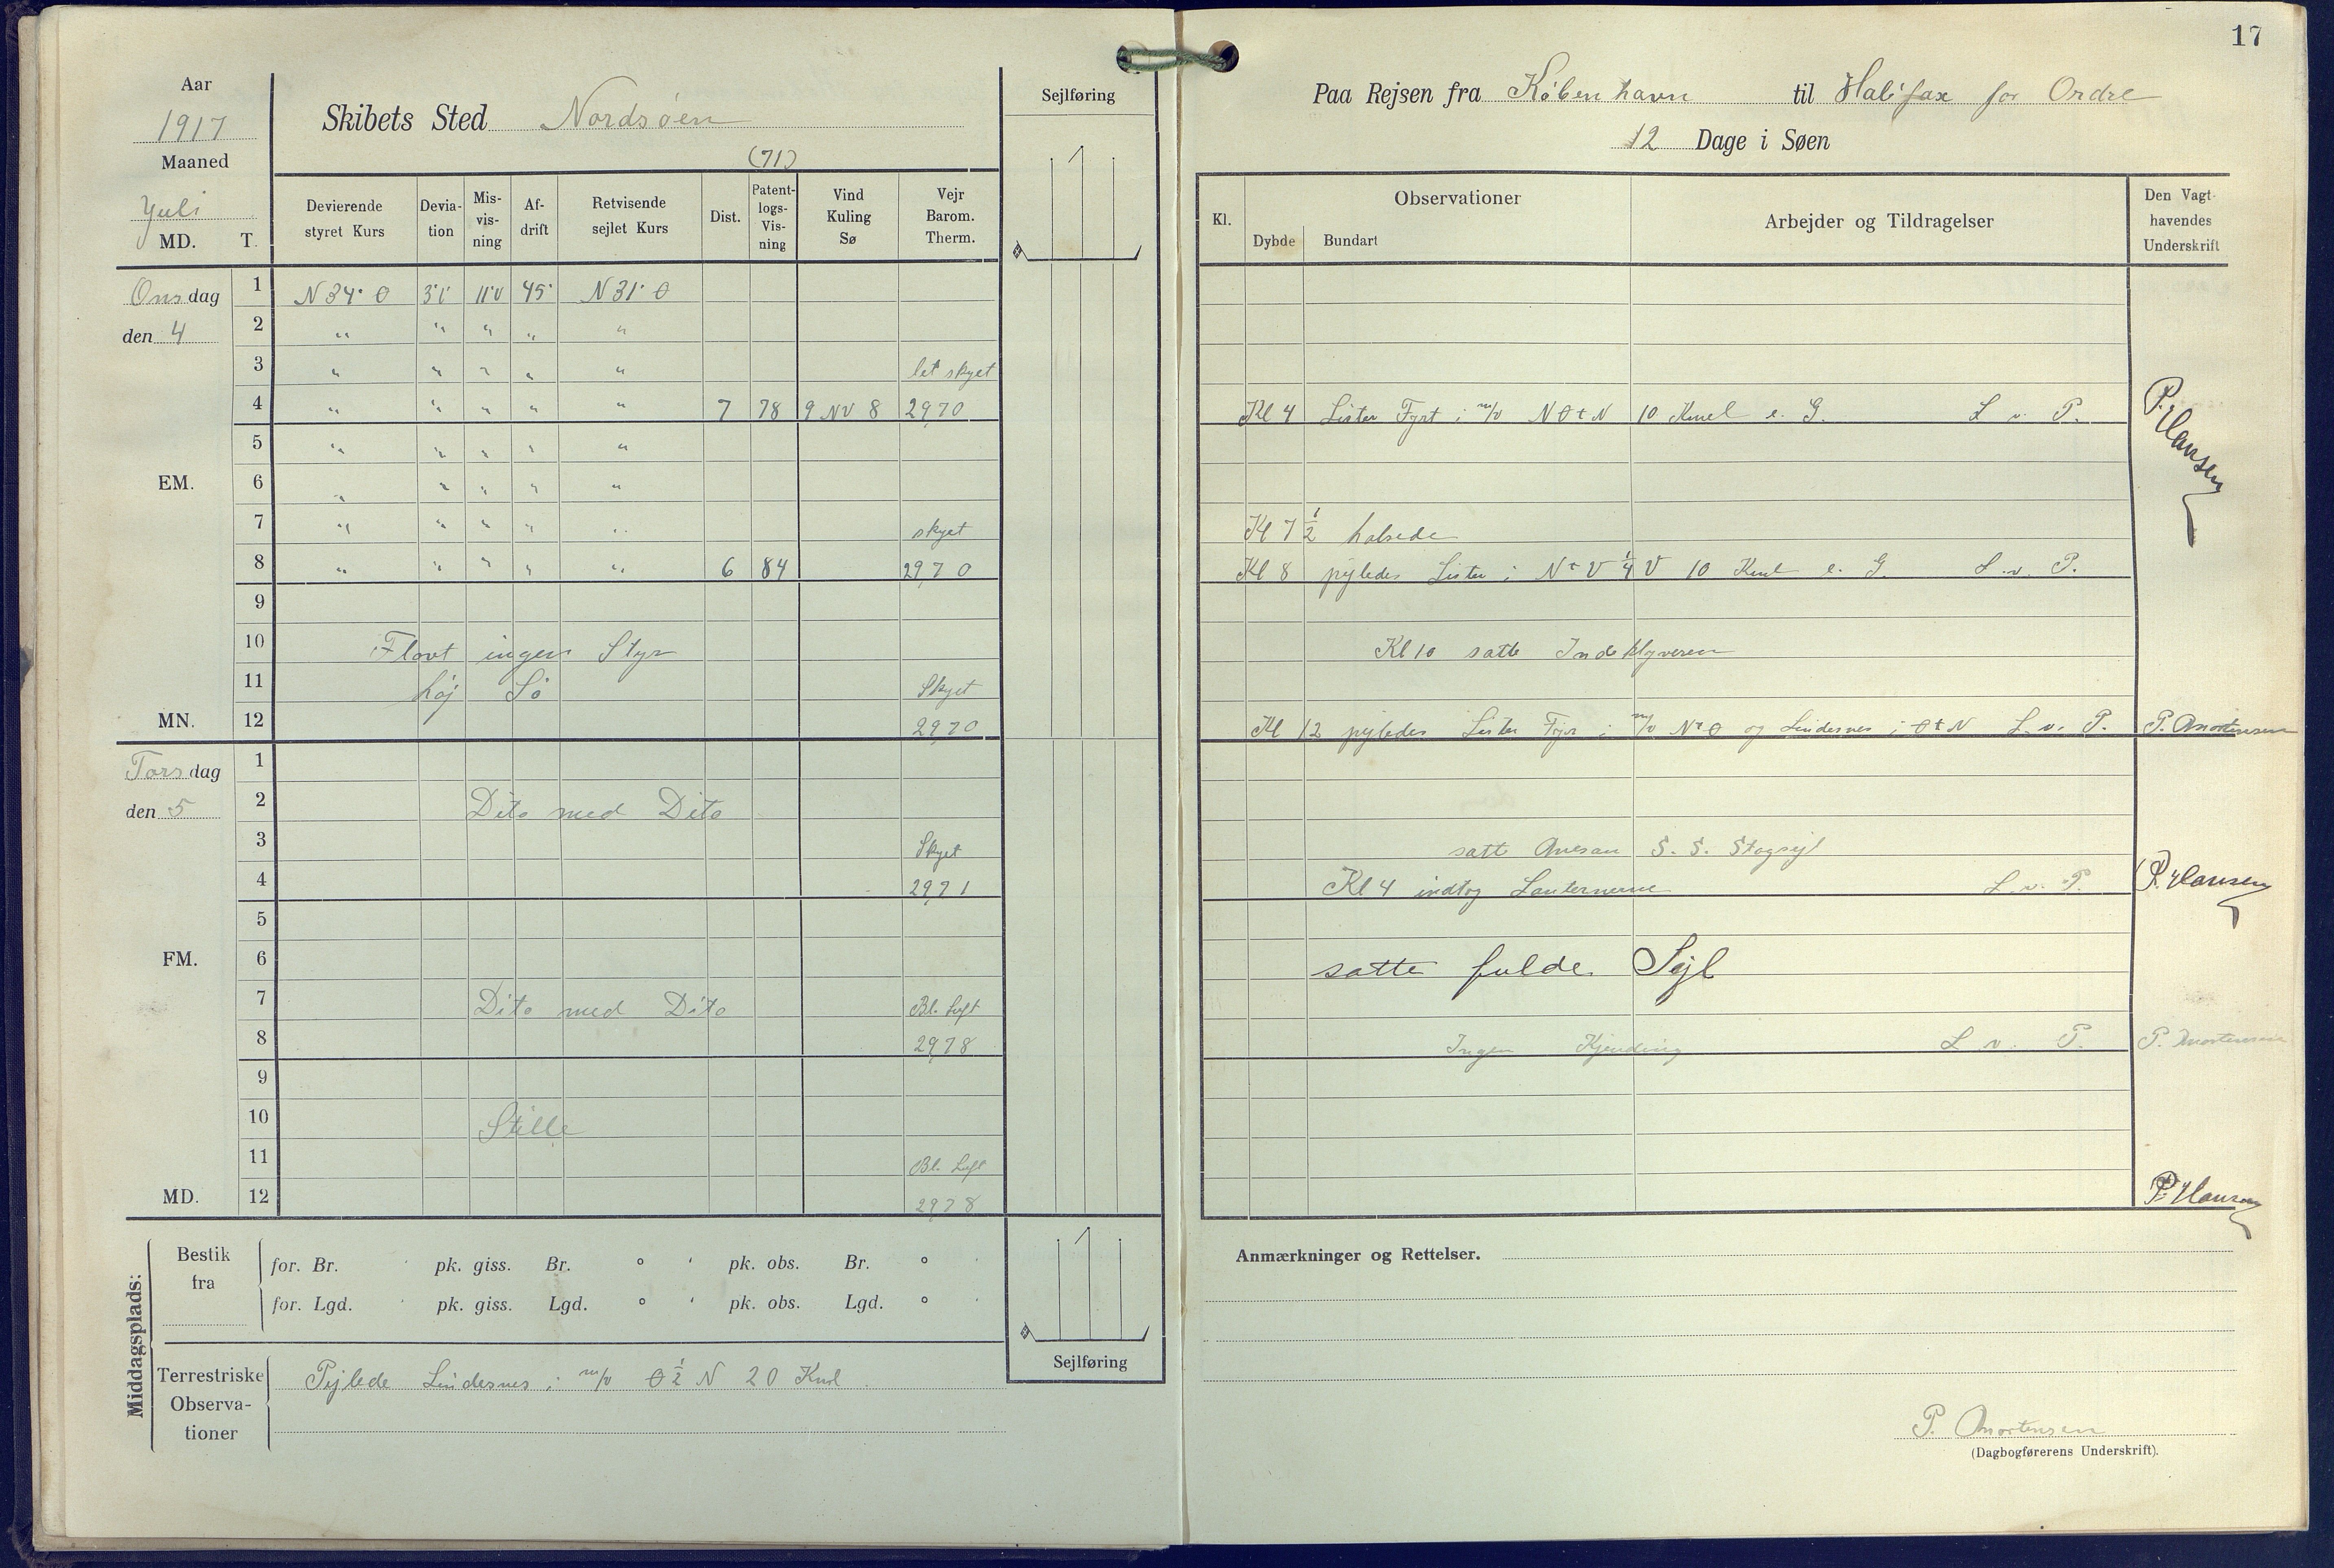 17
Aar
1917
Maaned
Juli
MD. T.
Skibets Sted Nordsøen
(71)
Devierende styret Kurs
Devia-tion
Mis-vis-ning
Af-drift
Retvisende sejlet Kurs
Dist.
Patent-logs-Vis-ning
Vind Kuling Sø
Vejr Barom. Therm.
Sejlføring
Onsdag 1 N 34° O 3°V 11°V 45° N 31° O
den 4 2 " " " " "
3 " " " " " let skyet
4 " " " " " 7 78 9 NV 8 29,70
5 " " " " "
EM. 6 " " " " "
7 " " " " " skyet
8 " " " " " 6 84 29,70
9
10 Flovt ingen Styr
11 høj Sø Skyet
MN. 12 29,70
Torsdag 1
den 5 2 Dito med Dito
3 Skyet
4 29,71
5
FM. 6
7 Dito med Dito Bl. Luft
8 29,78
9
10 Stille
11 Bl. Luft
MD. 12 29,78
Middagsplads:
Bestik fra
for. Br. ' pk. giss. Br. ° ' pk. obs. Br. ° '
for. Lgd. ' pk. giss. Lgd. ° ' pk. obs. Lgd. ° '
Terrestriske Observa-tioner
Pejlede Lindesnes i m/v O ½ N 20 Kml
Sejlføring
Paa Rejsen fra København til Halifax for Ordre
12 Dage i Søen
Kl.
Observationer
Dybde Bundart
Arbejder og Tildragelser
Den Vagt-havendes Underskrift
Kl 4 Lister Fyrt i m/v NOtN 10 Kmel e. G. L v. P. P. Hansen
Kl 7 ½ halsede
Kl 8 pejledes Lister i NtV ¼ V 10 Kml e. G. L. v. P.
Kl 10 satte Indeklyveren
Kl 12 pejledes Lister Fyr i m/v NtO og Lindesnes i OtN L. v. P. P. Mortensen
satte Mesan S. S. Stagsejl
Kl 4 indtog Lanternerne L. v. P. P. Hansen
satte fulde Sejl
Ingen Kjending L v. P. P. Mortensen
P. Hansen
Anmærkninger og Rettelser.
P. Mortensen
(Dagbogførerens Underskrift).